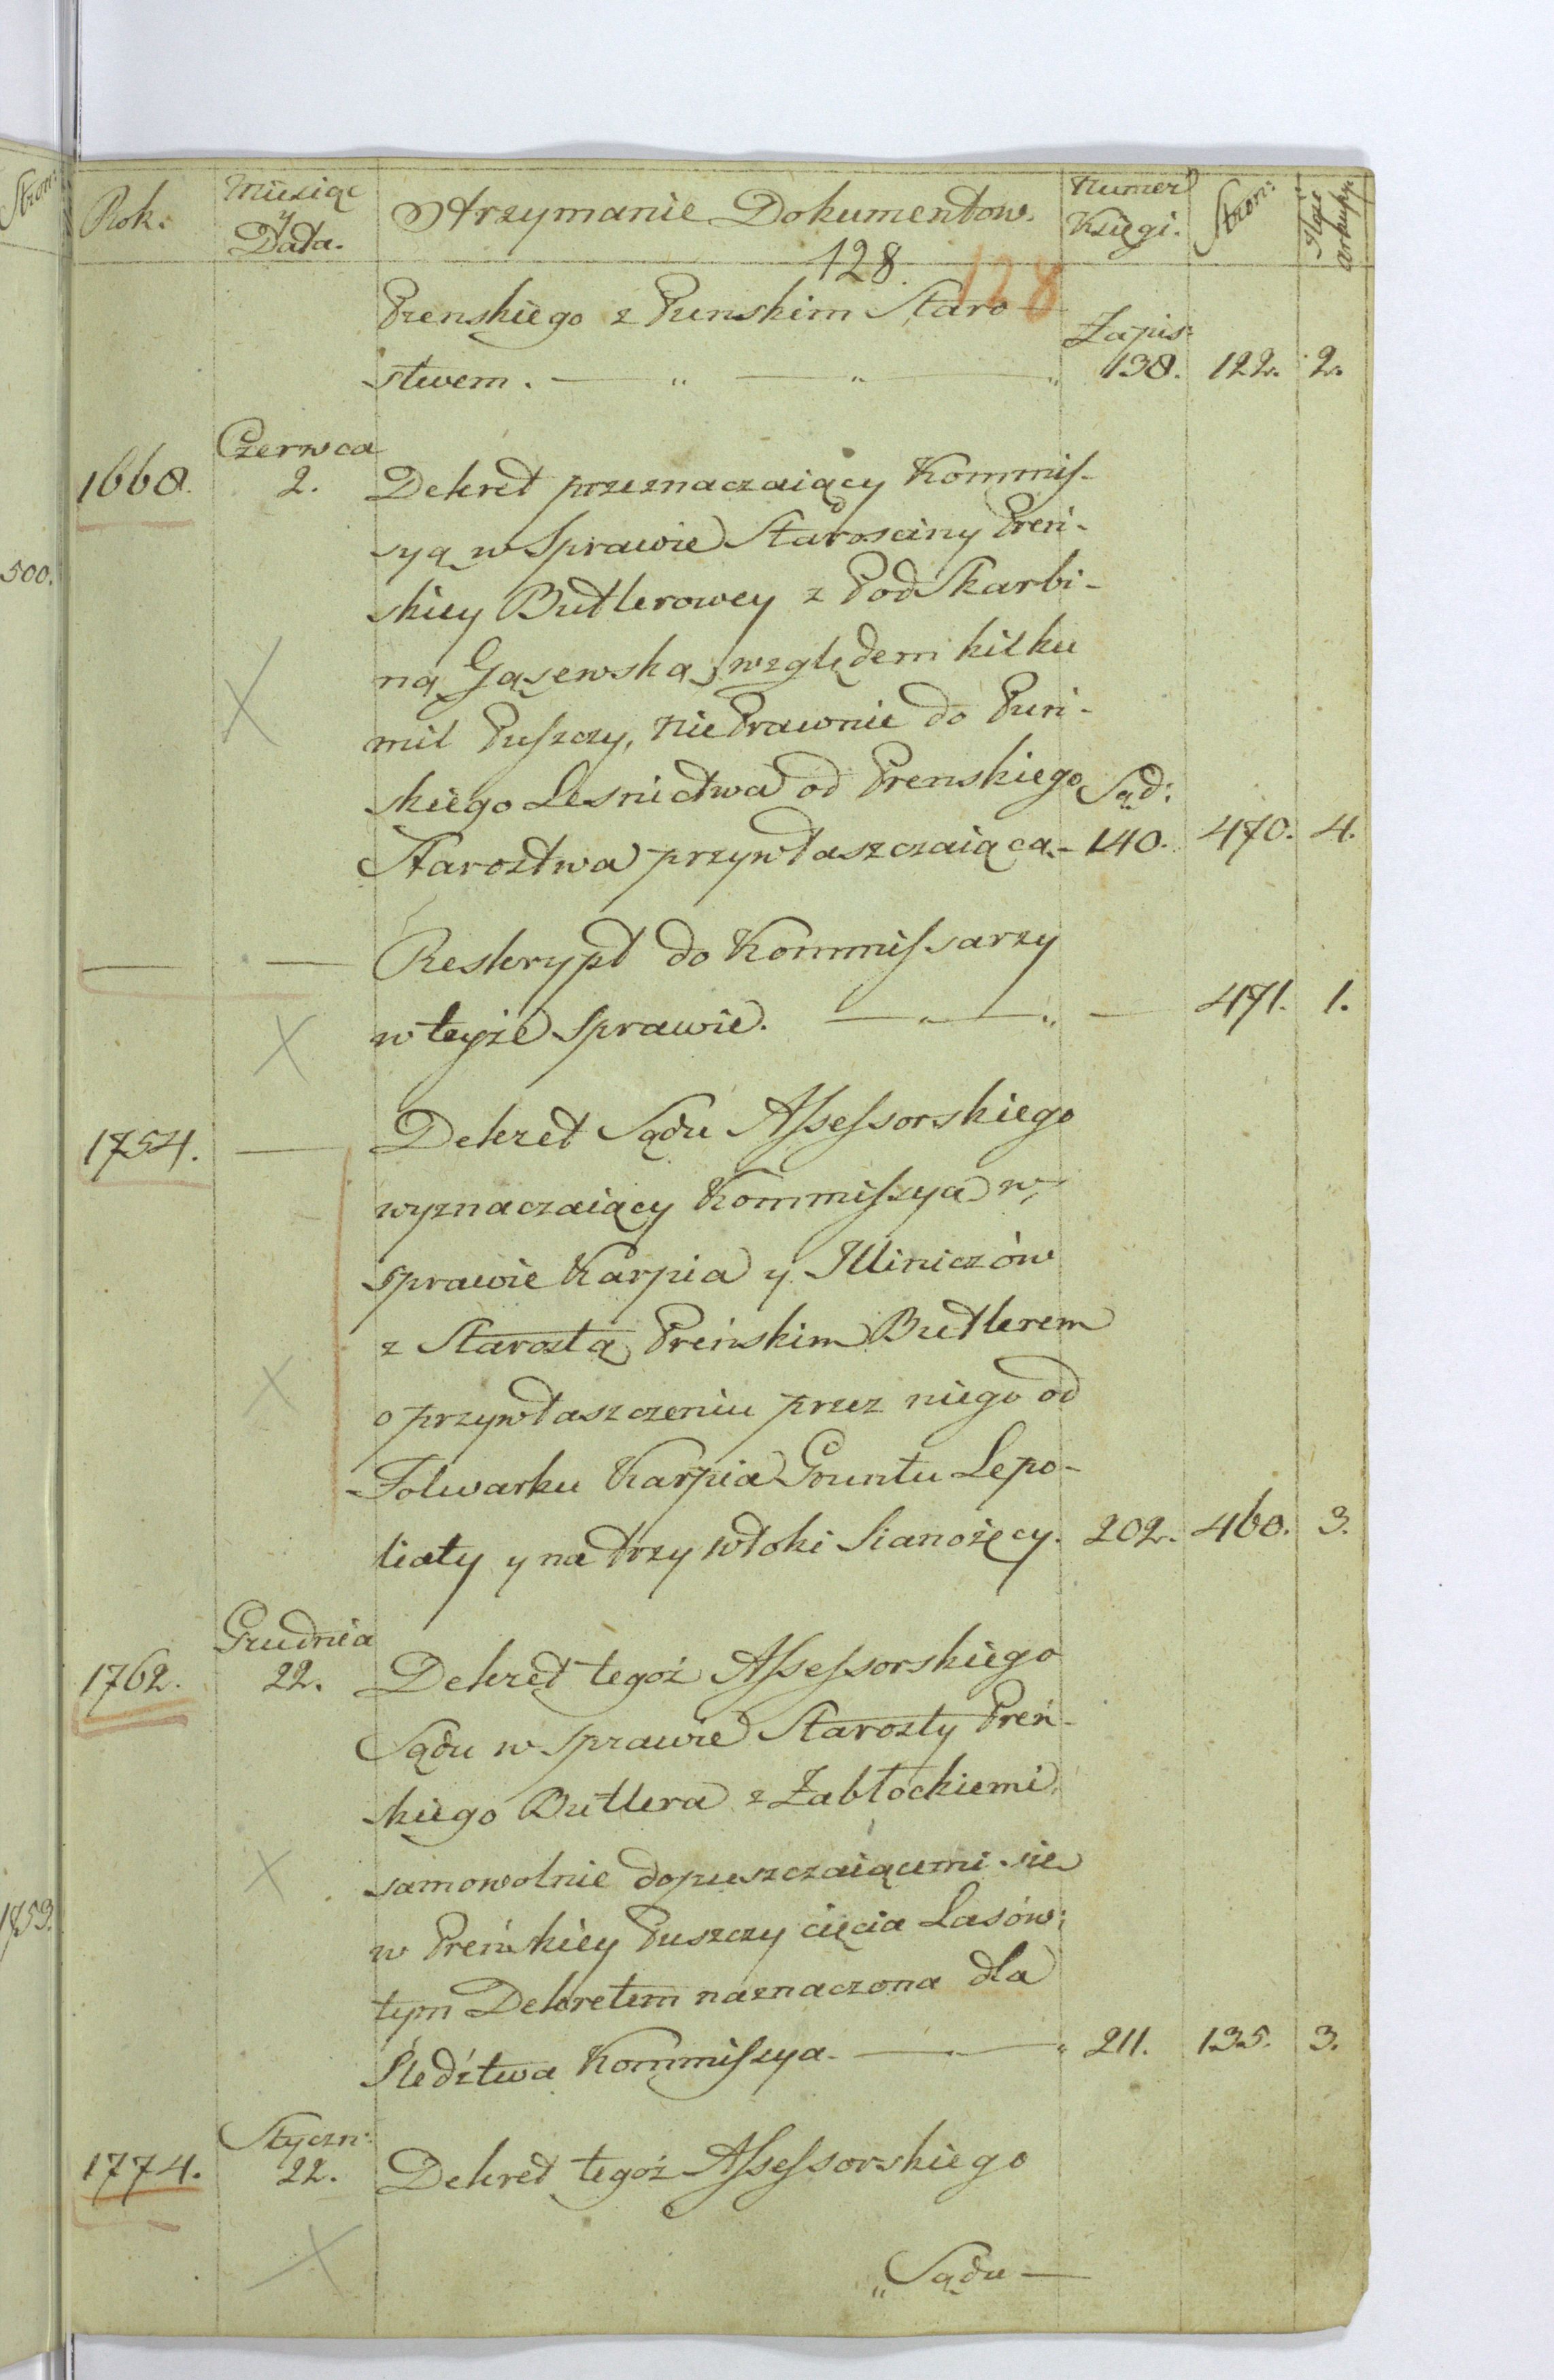 Stron:
Rok.
Miesiąc
y
Data.
Otrzymanie Dokumentow.
Numer
Księgi.
Stron:
Ilość
arkusz:
128.
128
Prenskiego z Punskim Staro-
Zapis:
stwem. 138. 122. 2.
Czerwca
1668. 2. Dekret przeznaczaiący Kommis-
syą w Sprawie Starosciny Preń-
500.
skiey Butlerowey z PodSkarbi-
ną Gąsewską, względem kilku
mil Puszczy, nie Prawnie do Puń-
skiego Lesnictwa od Prenskiego Sąd:
Starostwa przywłaszczaiącą. 140. 470. 4.
Reskrypt do Kommissarzy
w teyże Sprawie. 471. 1.
1754. Dekret Sądu Assessorskiego
wyznaczaiący Kommissyą w
sprawie Karpia y Illiniczów
z Starostą Preńskim Butlerem
o przywłaszczeniu przez niego od
Folwarku Karpia Gruntu Lepo-
liaty y na trzy włoki Sianożęcy. 202. 460. 3.
Grudnia
1762. 22. Dekret tegoż Assessorskiego
Sądu w Sprawie Starosty Preń-
skiego Butlera z Zabłockiemi
samowolnie dopuszczaiącemi się
1853.
w Preńskiey Puszczy cięcia Lasów;
tym Dekretem naznaczona dla
Śledztwa Kommissya. 211. 135. 3.
Styczn:
1774. 22. Dekret tegoż Assessorskiego
„Sądu